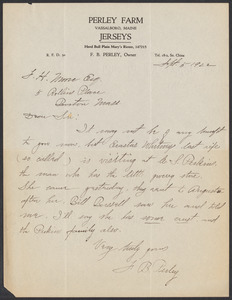 PERLEY FARM
VASSALBORO, MAINE
JERSEYS
Herd Bull Plain Mary's Rower, 147212
R. F. D. 20
F. B. PERLEY, Owner
Tel. 16-2, So. China
Sept 5 1922
F. H. Moore Esq
Place
Mass
Dear Sir:
It may not be of any benefit
to you now, but last wife
(so called) is visiting at Perkins,
the man who has the little going store.
She came yesterday, they went to Augusta
after her. Bill just told
me. I'll say she has some crust and
the family also.
Very truly yours
F. B. Perley